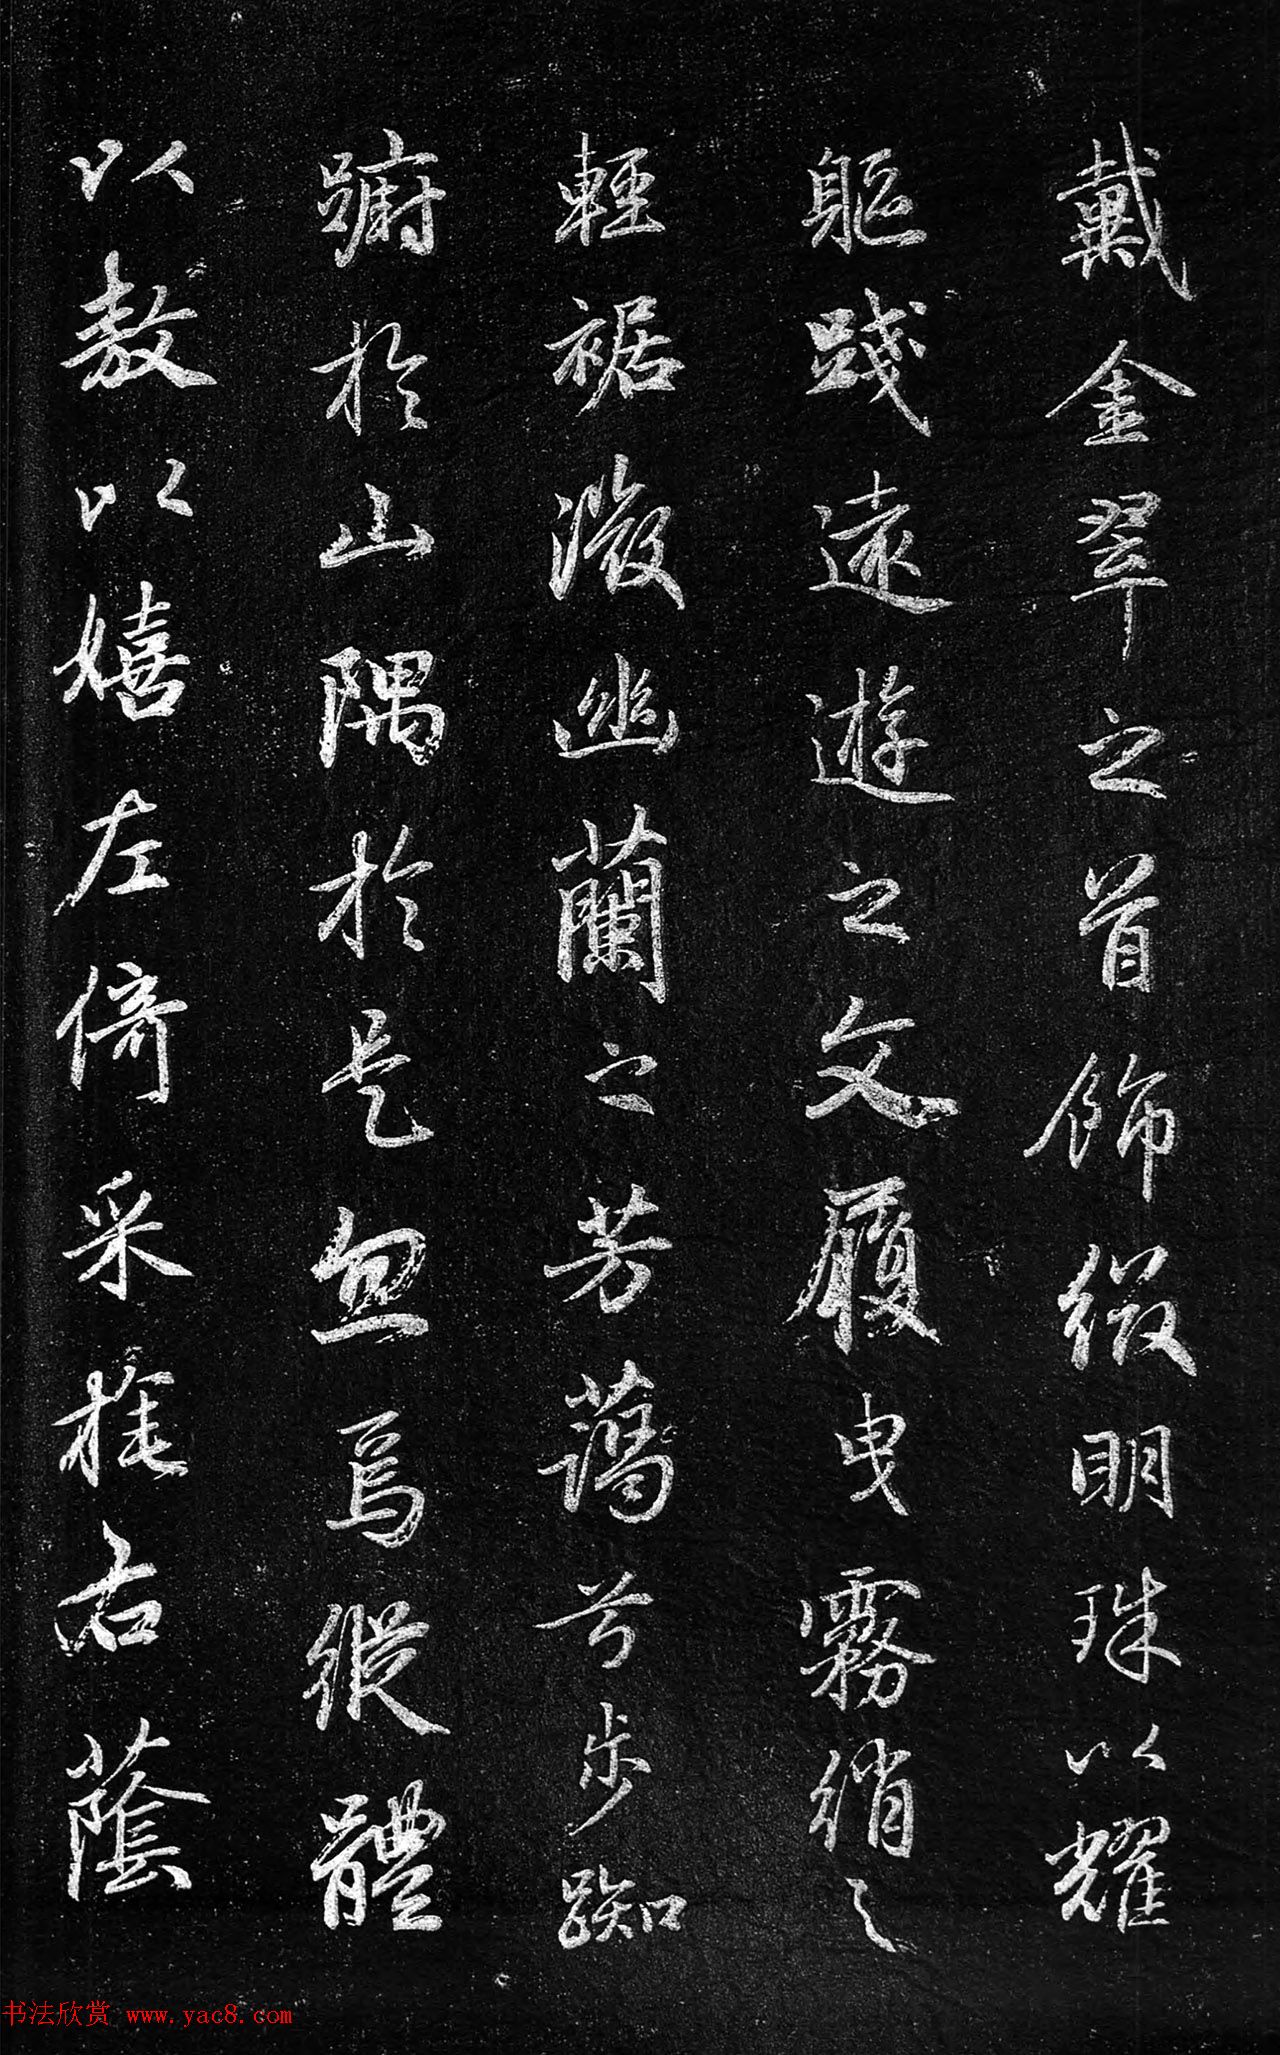 戴金翠之首飾綴明珠以耀
軀踐遠遊之文履曳霧綃之
輕裾微幽蘭之芳藹兮步踟
蹰於山隅於是忽焉縱體
以敖以嬉左倚采旄右蔭
书法欣赏 www.yac8.com